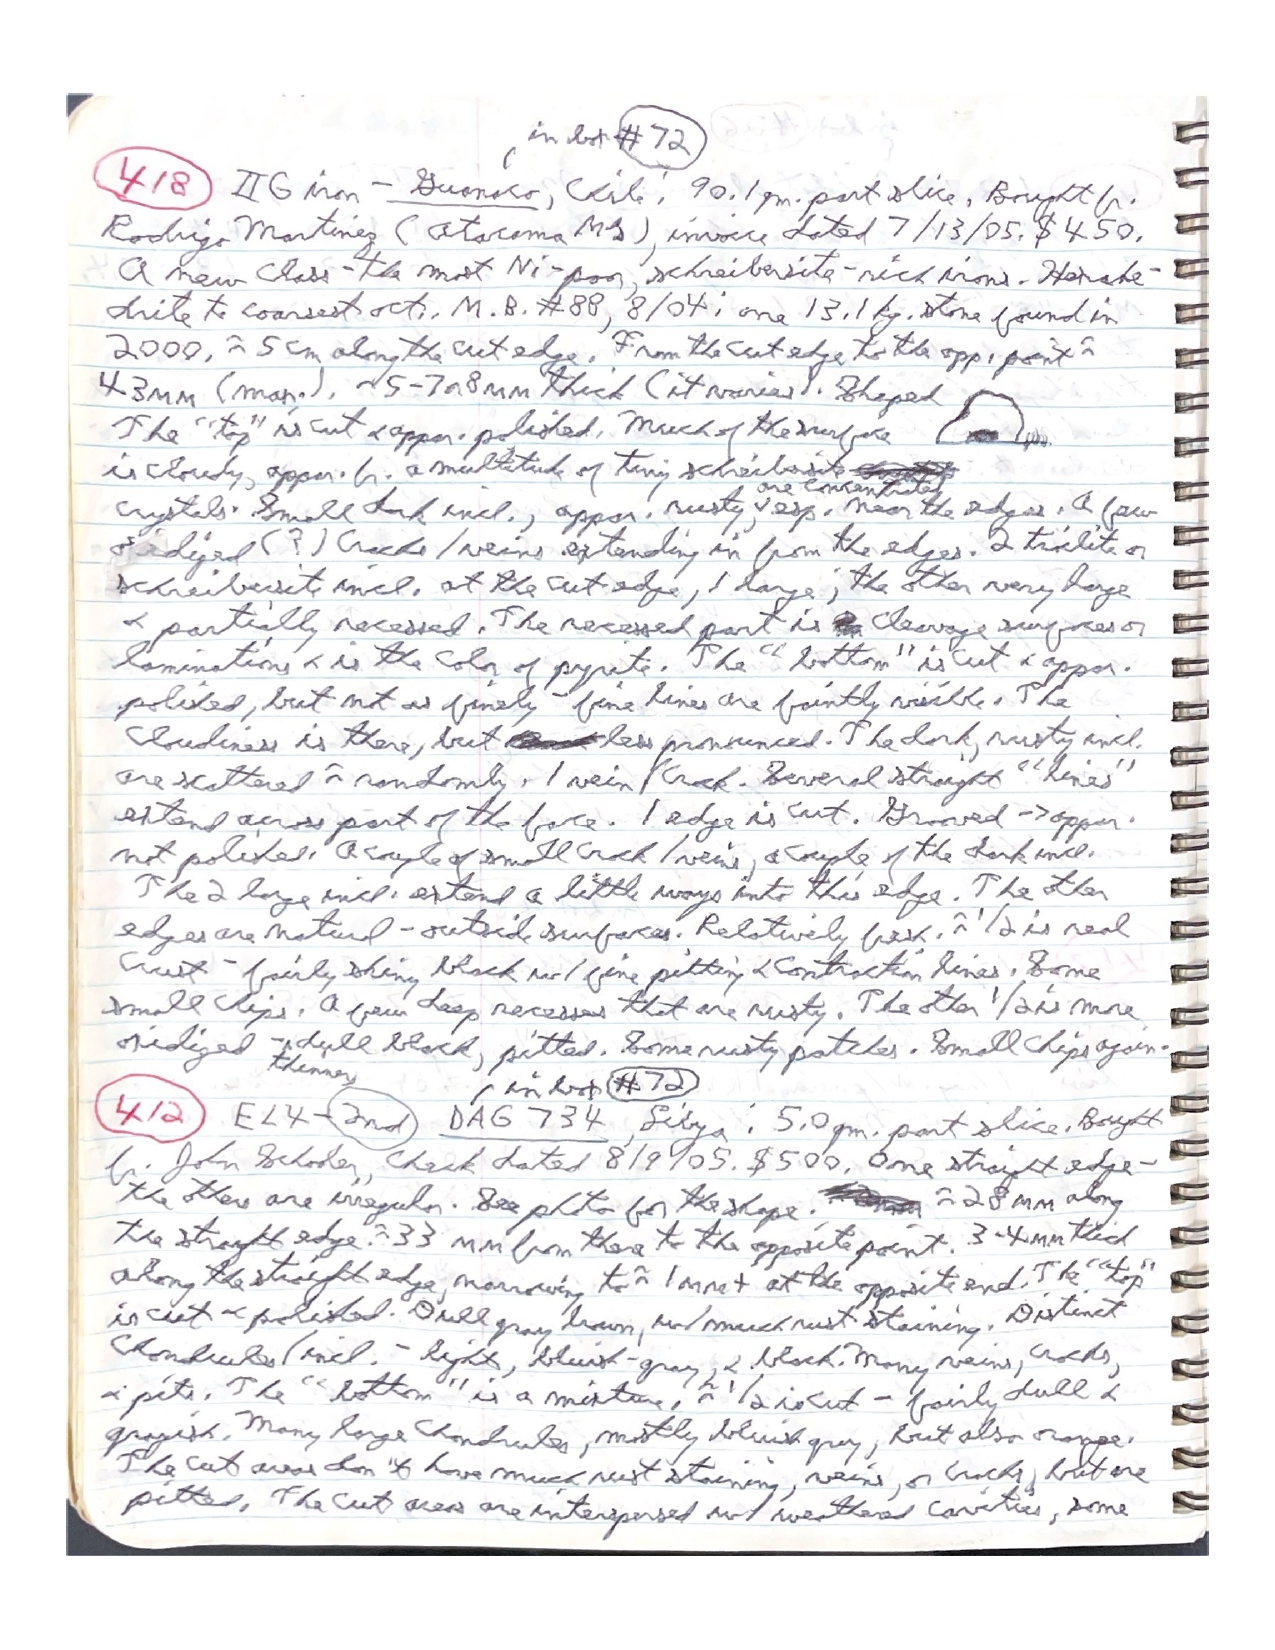 in box #72
418 IIG iron - Guanaco, Chile; 90.1 gm. part slice. Bought fr.
Rodrigo Martinez (Atacama MS), invoice dated 7/13/05. $450.
A new class - the most Ni-poor, schreibersite-rich irons. Hexahe-
drite to coarsest oct. M.B. #88, 8/04; one 13.1 kg. stone found in
2000. ≈5 cm along the cut edge. From the cut edge to the opp. point ≈
43mm (max.). ~5-7 or 8mm thick (it varies). Shaped
The "top" is cut & appar. polished. Much of the surface
is cloudy, appar. fr. a multitude of tiny schreibersite
crystals. Small dark incl., appar. rusty, are concentrated esp. near the edges. A few
oxidized (?) cracks/veins extending in from the edges. 2 troilite or
schreibersite incl. at the cut edge, 1 large; the other very large
& partially recessed. The recessed part is cleavage surfaces or
laminations & is the color of pyrite. The "bottom" is cut & appar.
polished, but not as finely - fine lines are faintly visible. The
cloudiness is there, but less pronounced. The dark, rusty incl.
are scattered ≈ randomly. 1 vein/crack. Several straight "lines"
extend across part of the face. 1 edge is cut. Grooved -> appar.
not polished. A couple of small crack/veins, a couple of the dark incl.
The 2 large incl. extend a little ways into this edge. The other
edges are natural - outside surfaces. Relatively fresh. ≈1/2 is real
crust - fairly shiny black w/ fine pitting & contraction lines. Some
small chips. A few deep recesses that are rusty. The other 1/2 is more
oxidized - dull black, pitted. Some rusty patches. Small chips again.
thinner
in box #72
412 EL4-2nd DAG 734, Libya; 5.0 gm. part slice. Bought
fr. John Schooler, check dated 8/9/05. $500. One straight edge -
the others are irregular. See photo for the shape. ≈28mm along
the straight edge. ≈33 mm from there to the opposite point. 3-4mm thick
along the straight edge, narrowing to ≈1mm+ at the opposite end. The "top"
is cut & polished. Dull gray brown, w/ much rust staining. Distinct
chondrules/incl. - light, bluish-gray, & black. Many veins, cracks,
& pits. The "bottom" is a mixture. ≈1/2 is cut - fairly dull &
grayish. Many large chondrules, mostly bluish gray, but also orange.
The cut areas don't have much rust staining, veins, or cracks, but are
pitted. The cut areas are interspersed w/ weathered cavities, some